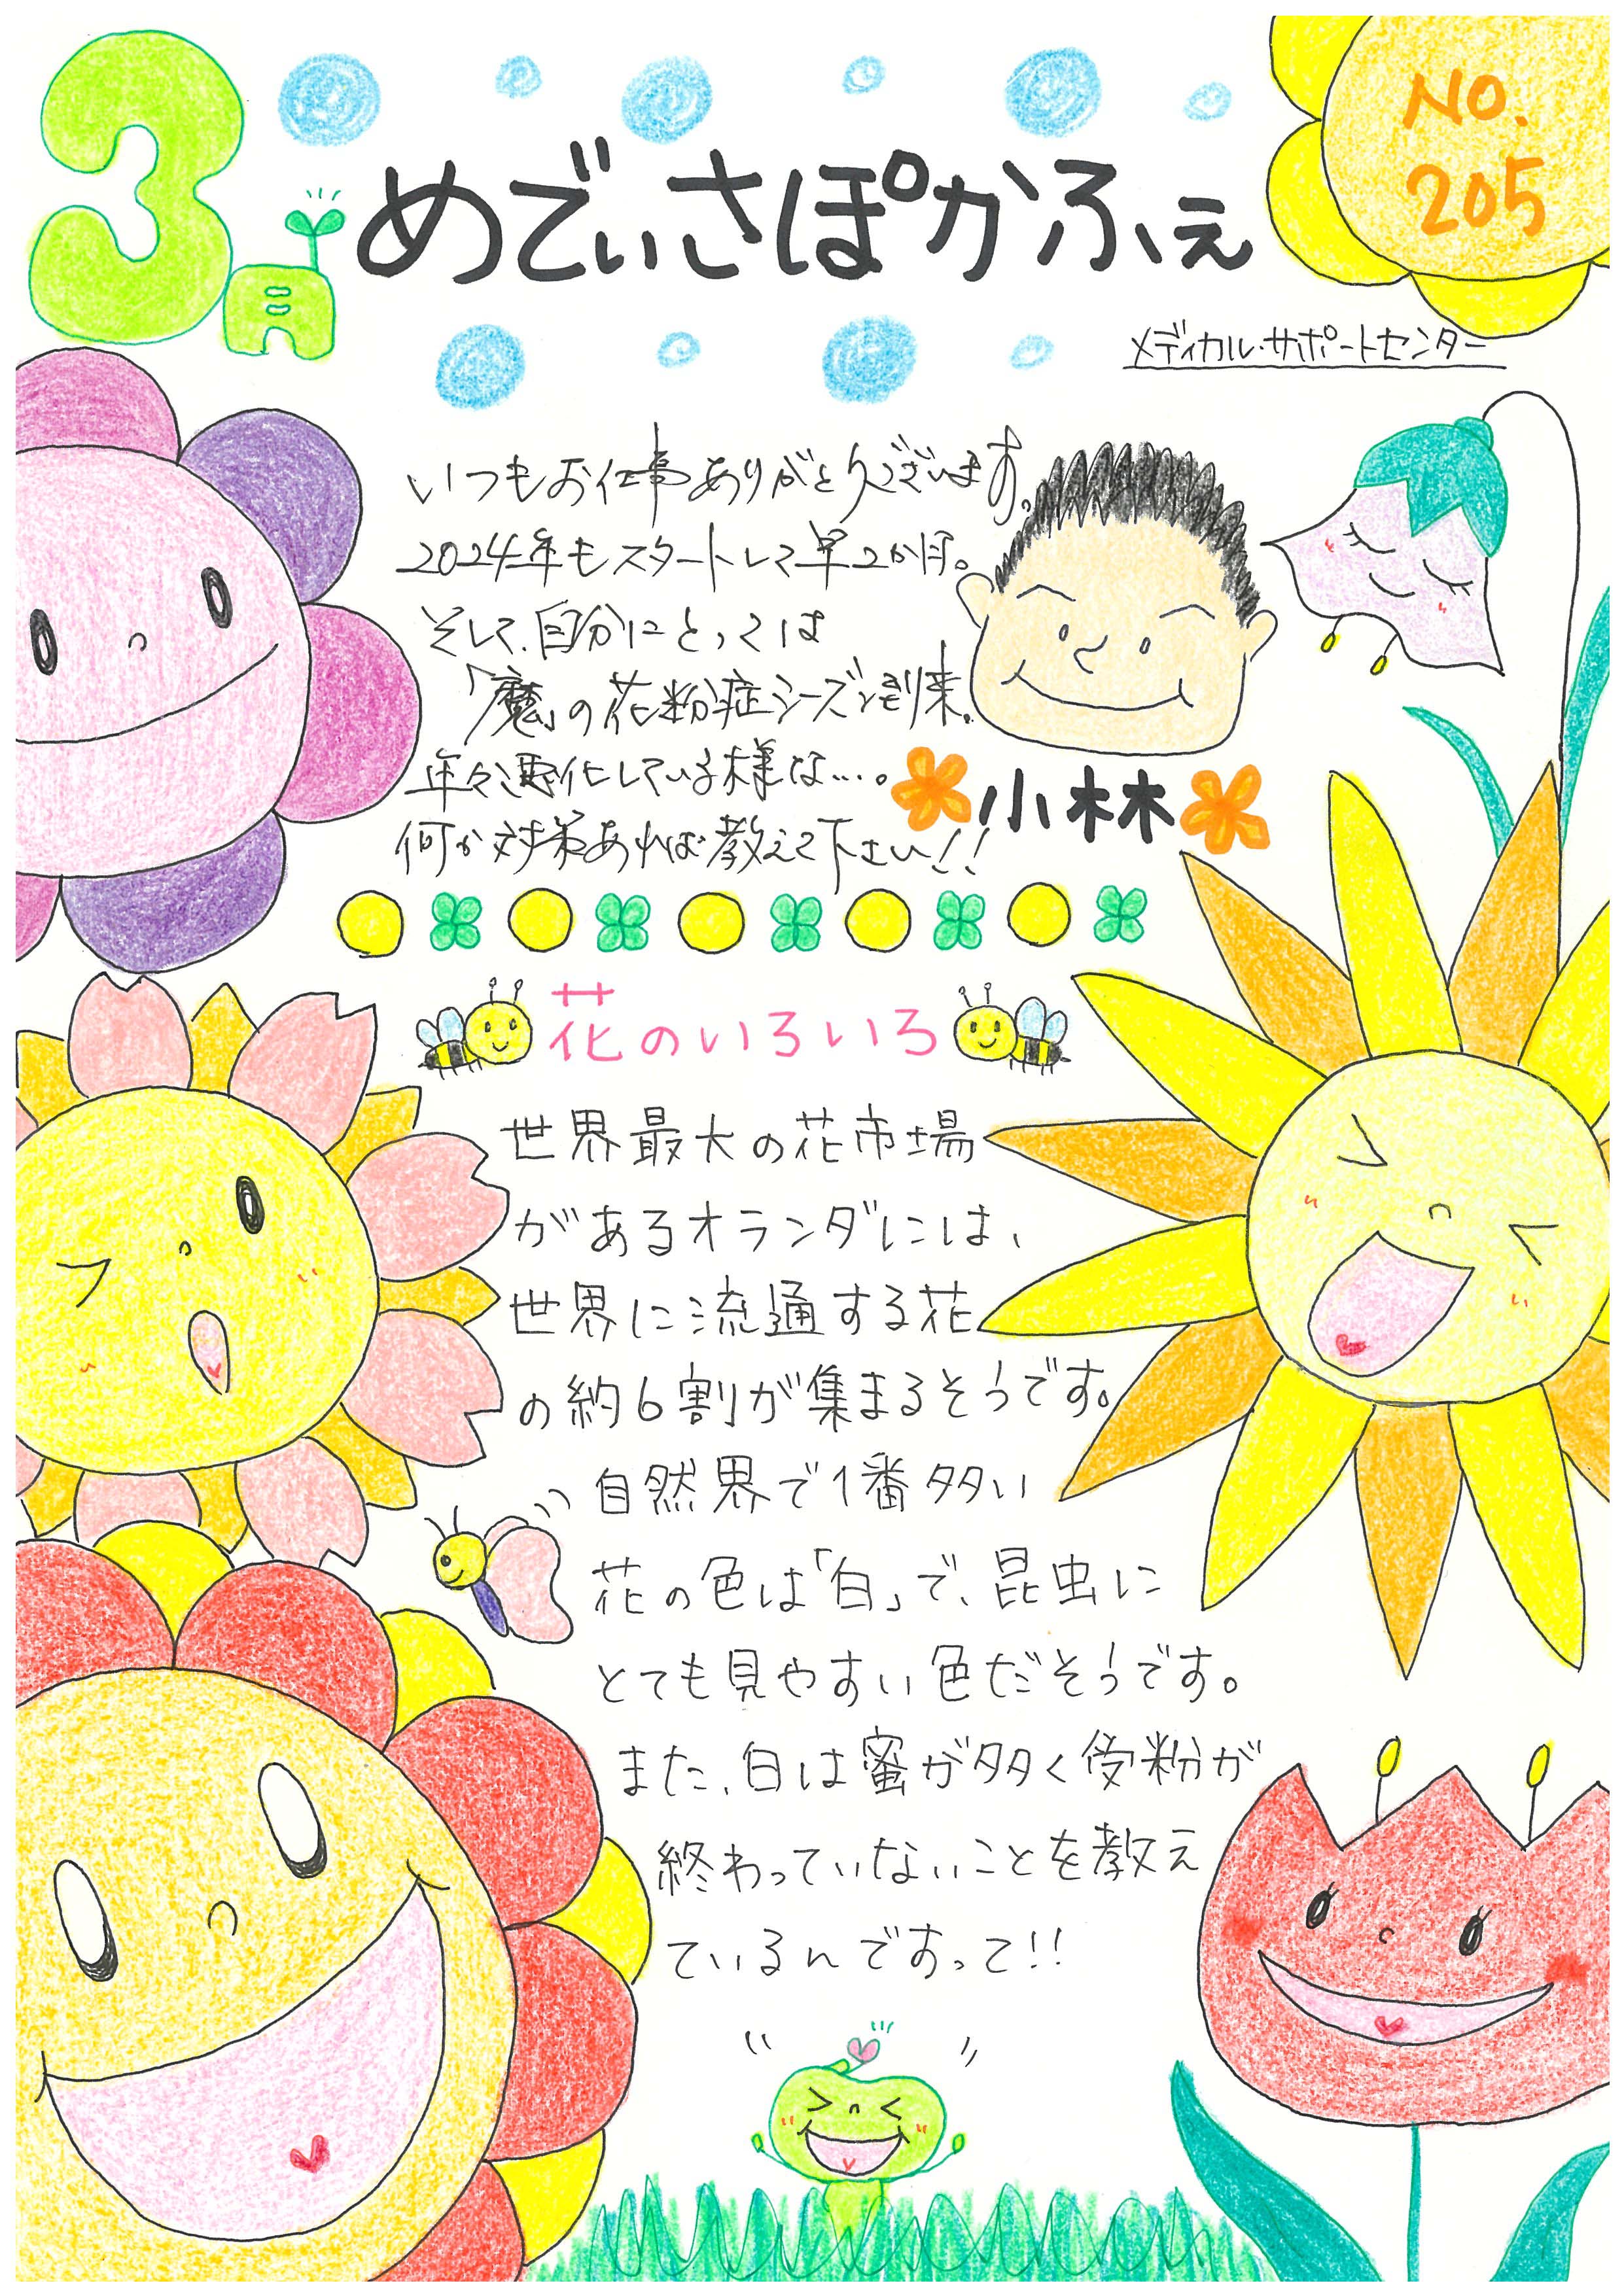 3月
めでぃさぽかふぇ
No.
205
メディカル・サポートセンター
いつもお仕事ありがとうございます。
2024年もスタートして早2か月。
そして、自分にとっては
「魔」の花粉症シーズン到来。
年々悪化している様な…。
何か対策あれば教えて下さい!!
小林
花のいろいろ
世界最大の花市場
があるオランダには、
世界に流通する花
の約6割が集まるそうです。
自然界で1番多い
花の色は「白」で、昆虫に
とても見やすい色だそうです。
また、白は蜜が多く受粉が
終わっていないことを教え
ているんですって!!